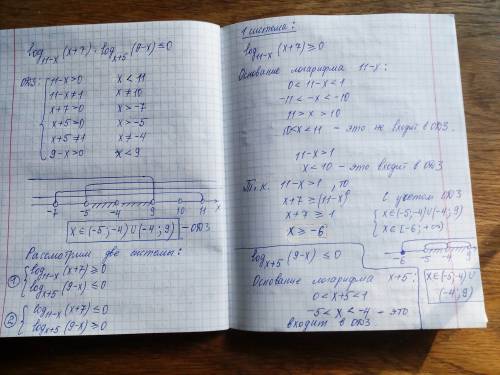 log₁₁₋ₓ (x+7) · logₓ₊₅ (9-x) ≤ 0
ОДЗ: { 11-x>0 x < 11
11-x≠1 x ≠ 10
x+7>0 x > -7
x+5>0 x > -5
x+5≠1 x ≠ -4
9-x>0 x < 9
-7 -5 -4 9 10 11 x
x∈(-5;-4)∪(-4;9) - ОДЗ
Рассмотрим две системы:
① { log₁₁₋ₓ (x+7) ≥ 0
logₓ₊₅ (9-x) ≤ 0
② { log₁₁₋ₓ (x+7) ≤ 0
logₓ₊₅ (9-x) ≥ 0
1 система:
log₁₁₋ₓ (x+7) ≥ 0
Основание логарифма 11-x:
0 < 11-x < 1
-11 < -x < -10
11 > x > 10
10<x<11 - это не входит в ОДЗ.
11-x>1
x < 10 - это входит в ОДЗ
Т.к. 11-x>1, то
x+7 ≥ (11-x)⁰
x+7 ≥ 1
x ≥ -6
С учетом ОДЗ
{ x∈(-5;-4)∪(-4;9)
x∈[-6;+∞)
-6 -5 -4 9
x∈(-5;-4)∪
(-4;9)
logₓ₊₅ (9-x) ≤ 0
Основание логарифма x+5:
0 < x+5 < 1
-5 < x < -4 - это
входит в ОДЗ